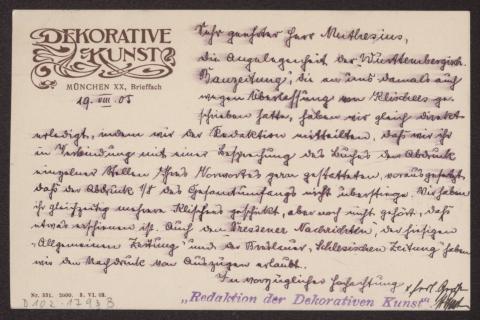 DEKORATIVE
KUNST
MÜNCHEN XX, Brieffach
19. VIII. 05
Sehr geehrter Herr Muthesius,
die Angelegenheit der „Württembergisch.
Bauzeitung“, die an uns damals auch
wegen Überlassung von Klischees ge-
schrieben hatte, haben wir gleich direkt
erledigt, indem wir der Redaktion mitteilten, dass wir ihr
in Verbindung mit einer Besprechung des Buches den Abdruck
einzelner Stellen Ihres Vorwortes gern gestatteten, vorausgesetzt
dass der Abdruck 1/8 des Gesamtumfangs nicht überstiege. Wir haben
ihr gleichzeitig mehrere Klischees geschickt, aber noch nicht gehört, dass
etwas erschienen ist. Auch den Dresdener Nachrichten, der hiesigen
„Allgemeinen Zeitung“ und der Breslauer „Schlesischen Zeitung“ haben
wir den Nachdruck von Auszügen erlaubt.
In vorzüglicher Hochachtung
Nr. 331. 2000. 3. VI. 03.
„Redaktion der Dekorativen Kunst“
D 102-1793 B